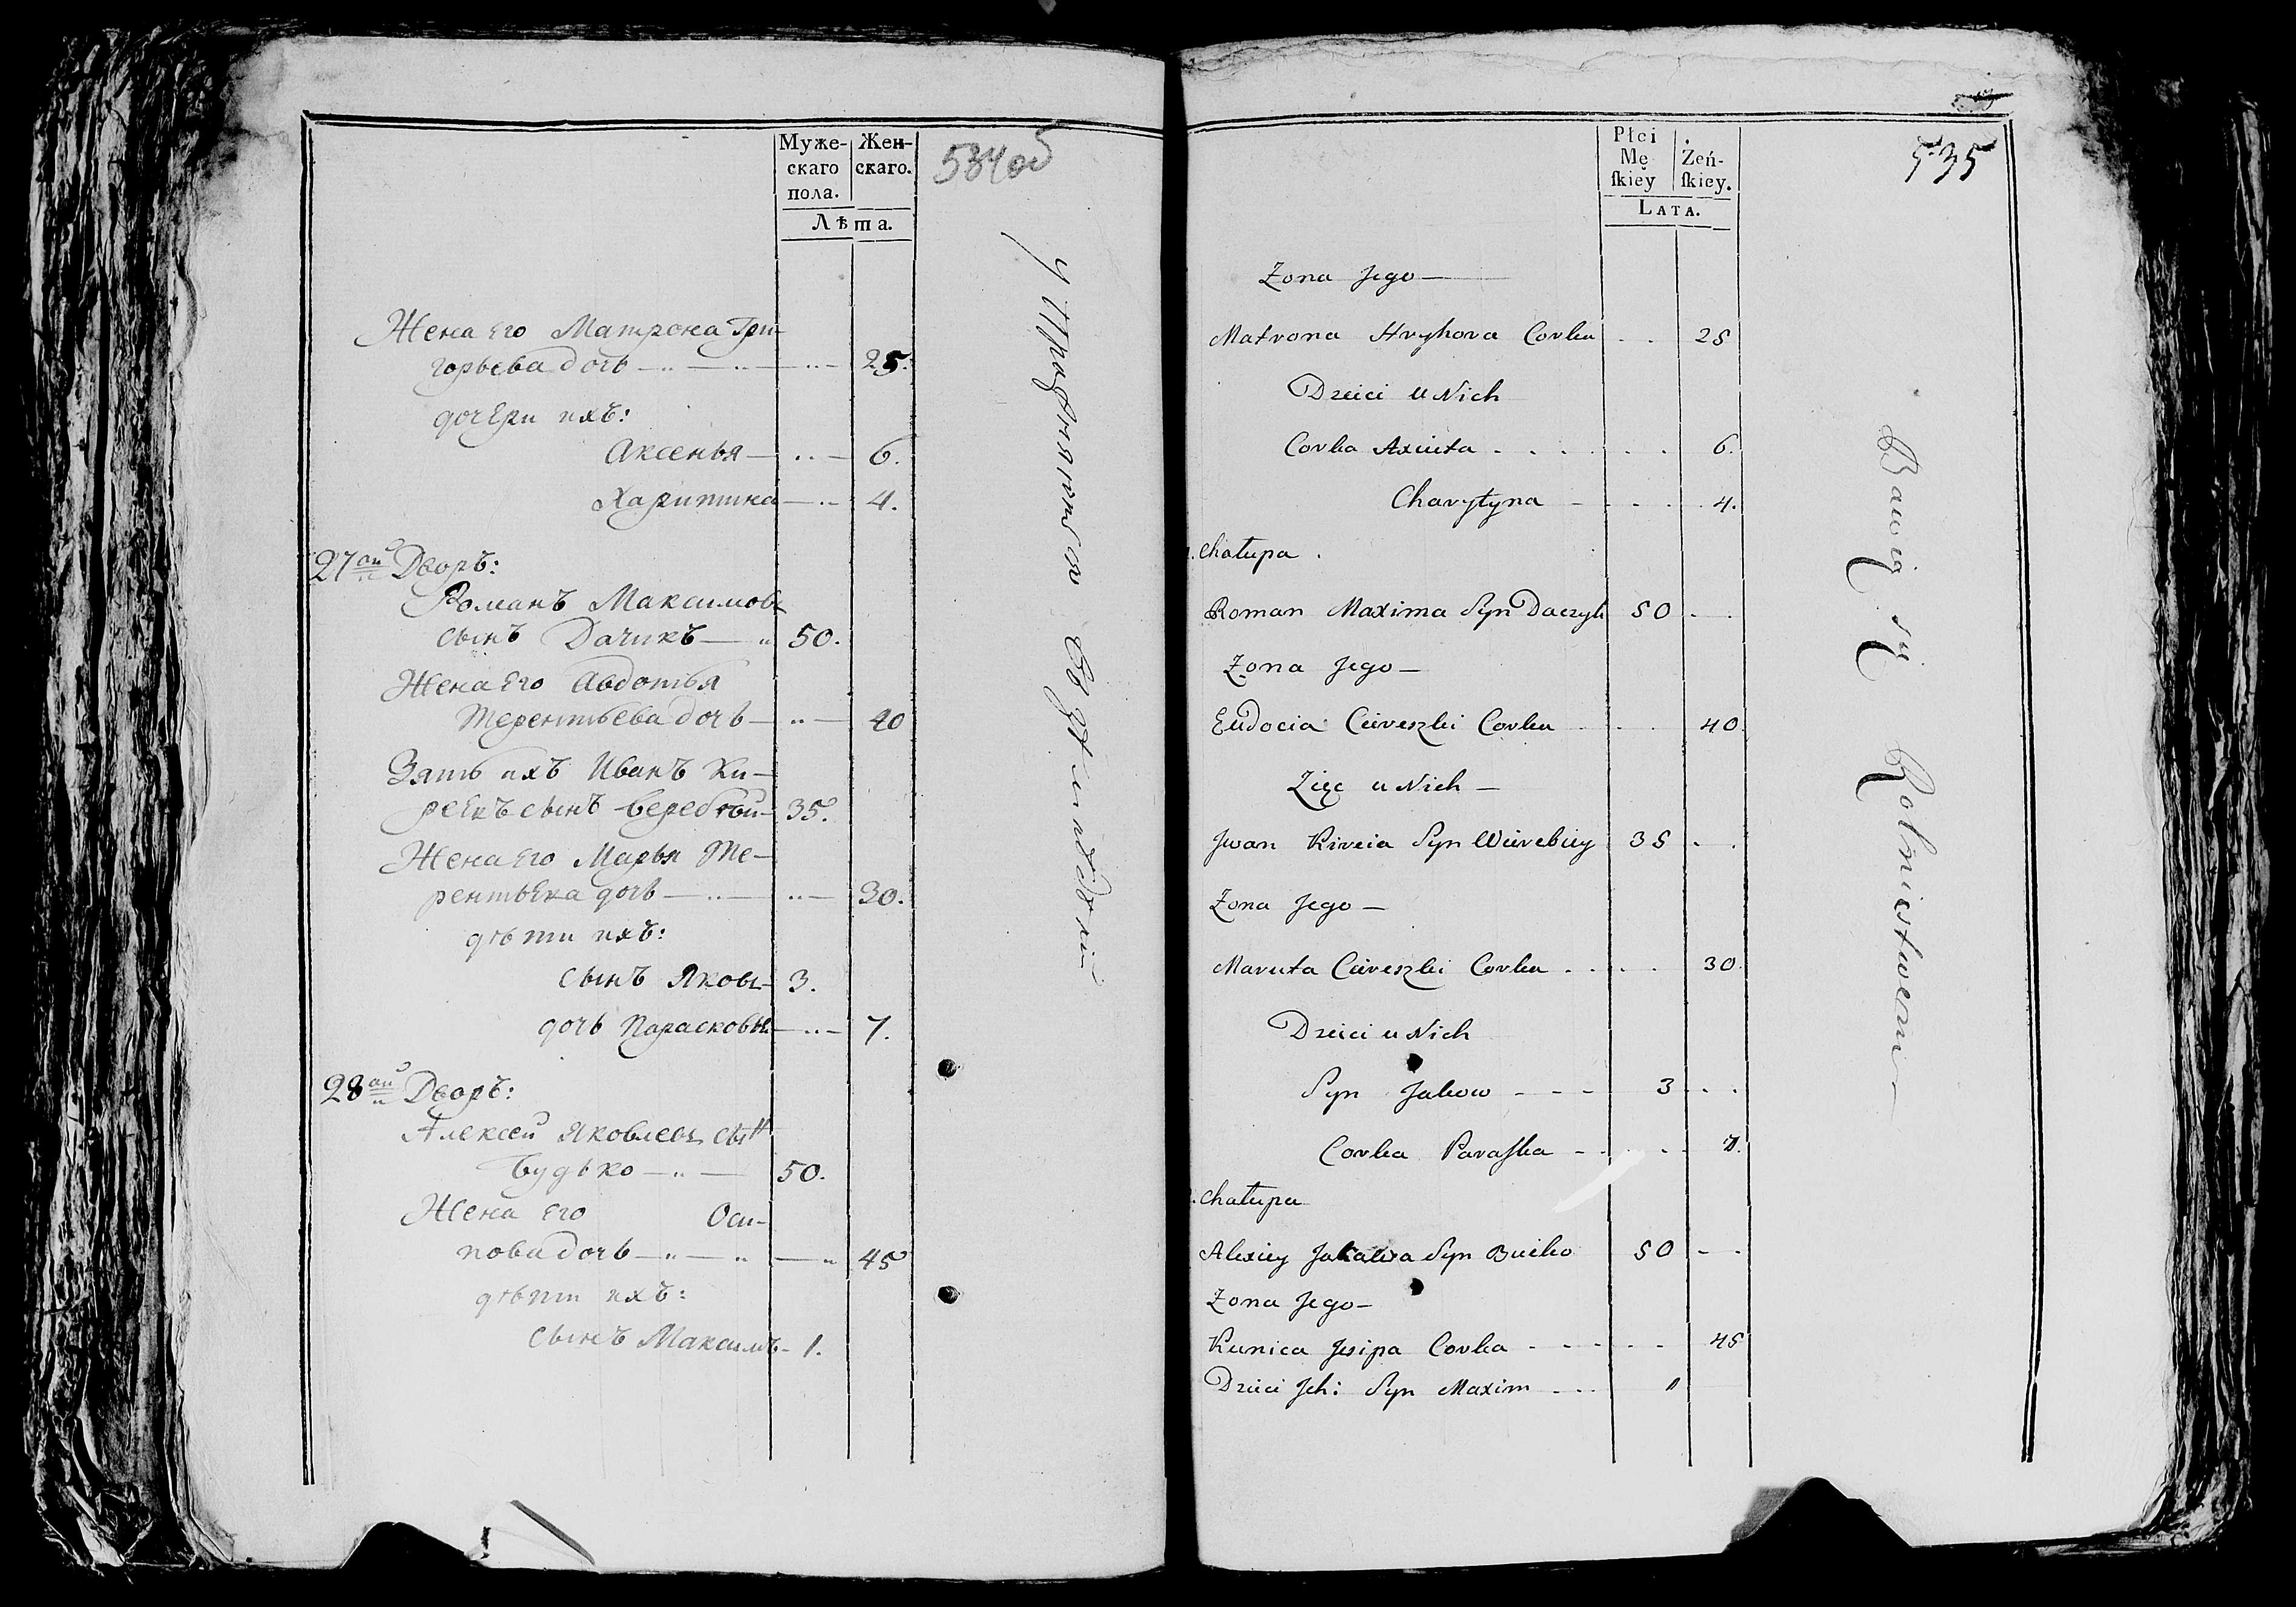 Муже-
скаго
пола.
Жен-
скаго.
Лѣта.
534 об
Жена его Матрона Гри-
горьева дочь 25.
дочери ихъ:
Аксенья 6.
Харитина 4.
27ой Дворъ:
Романъ Максимовъ
сынъ Дачикъ 50.
Жена его Авдотья
Терентьева дочь 40
Зять ихъ Иванъ Ки-
реевъ сынъ 35.
Жена его Марья Те-
рентьева дочь 30.
дѣти ихъ:
сынъ Яковъ 3.
дочь Парасковья 7.
28ой Дворъ:
Алексей Яковлевъ сынъ
Будько 50.
Жена его Оси-
пова дочь 45
дѣти ихъ:
сынъ Максимъ 1.
Płci
Mę
ſkiey
Żeń-
ſkiey.
LATA.
535
Zona Jego
Matrona Hryhora Corka 25
Dzieci u Nich
Corka Axiuta 6.
Charytyna 4.
chałupa
Roman Maxima Syn Daczyk 50
Zona Jego
Eudocia Cireszki Corka 40
Zięc u Nich
Jwan Kireia Syn 35
Zona Jego
Maruta Cireszki Corka 30
Dzieci u Nich
Syn Jakow 3
Corka Paraſka 7.
chałupa
Alexiey Jakowa Syn 50
Zona Jego
Kunica Jesipa Corka 45
Dzieci Jch: Syn Maxim 1
Bawią się Rolnictwem